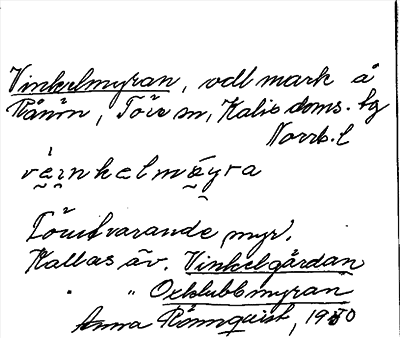 Vinkelmyran, odl mark å
Rånön, Töre sn, Kalix doms. hg
Norrb. l
verŋkelmøyra
Förutvarande myr.
Kallas äv. Vinkelgårdan
" " Oxklubbmyran
Anna Rönnquist, 1980